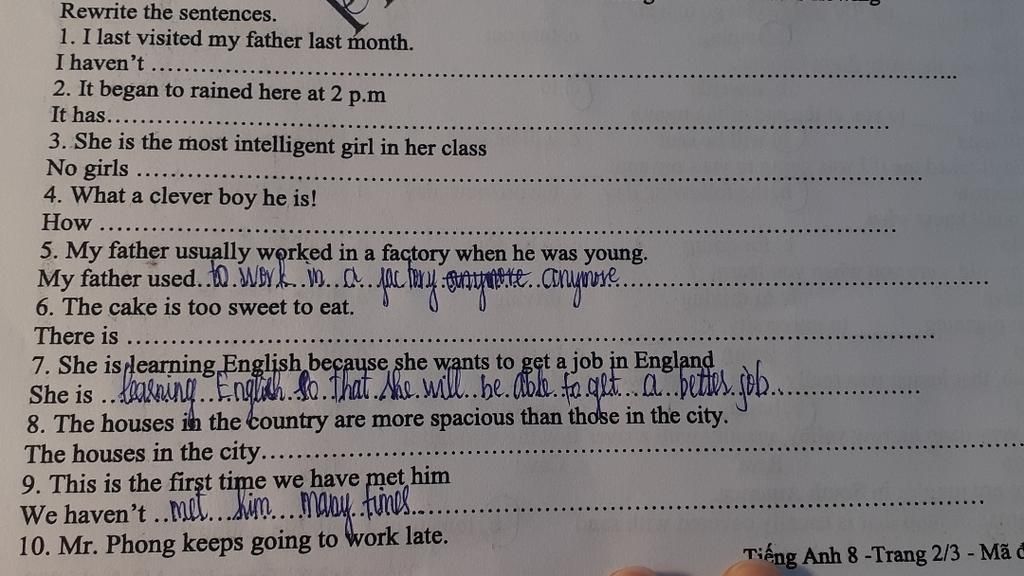 Rewrite the sentences.
1. I last visited my father last month.
I haven't ........................................................................
2. It began to rained here at 2 p.m
It has........................................................................
3. She is the most intelligent girl in her class
No girls ........................................................................
4. What a clever boy he is!
How ........................................................................
5. My father usually worked in a factory when he was young.
My father used..to work in a factory anymore anymore........................
6. The cake is too sweet to eat.
There is ........................................................................
7. She is learning English because she wants to get a job in England
She is ..learning English so that she will be able to get a better job..............
8. The houses in the country are more spacious than those in the city.
The houses in the city........................................................................
9. This is the first time we have met him
We haven't ..met him many times........................................
10. Mr. Phong keeps going to work late.
Tiếng Anh 8 -Trang 2/3 - Mã